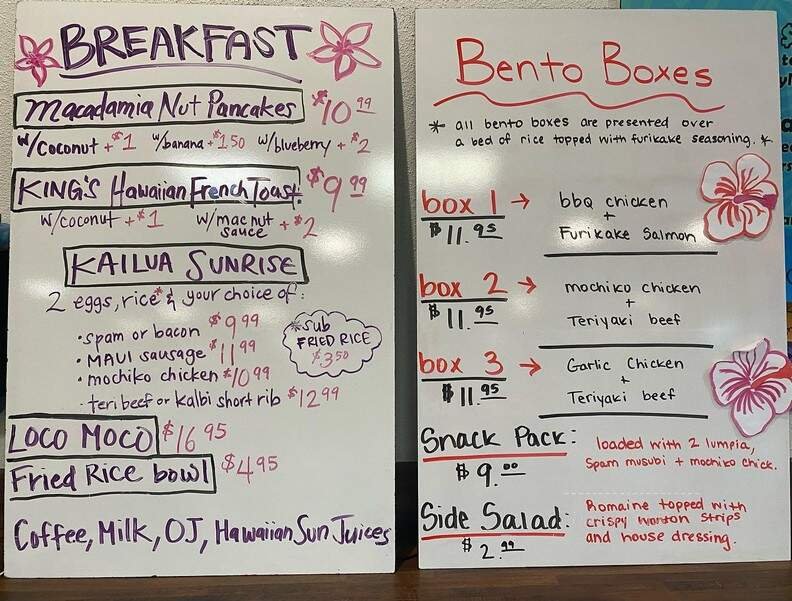 BREAKFAST
Macadamia Nut Pancakes $10.99
w/coconut +$1 w/banana +$1.50 w/blueberry + $2
KING'S Hawaiian French Toast $9.99
w/coconut +$1 w/mac nut sauce + $2
KAILUA SUNRISE
2 eggs, rice* & your choice of:
• spam or bacon $9.99
• MAUI sausage $11.99
• mochiko chicken $10.99
• teri beef or Kalbi short rib $12.99
*sub
FRIED RICE
$3.50
LOCO MOCO $16.95
Fried Rice bowl $4.95
Coffee, Milk, OJ, Hawaiian Sun Juices
Bento Boxes
* all bento boxes are presented over
a bed of rice topped with furikake seasoning. *
box 1 → bbq chicken
+
$11.95 Furikake Salmon
box 2 → mochiko chicken
+
$11.95 Teriyaki beef
box 3 → Garlic Chicken
+
$11.95 Teriyaki beef
Snack Pack: loaded with 2 lumpia,
$9.00 Spam musubi + mochiko chick.
Side Salad: Romaine topped with
crispy wonton strips
$2.99 and house dressing.